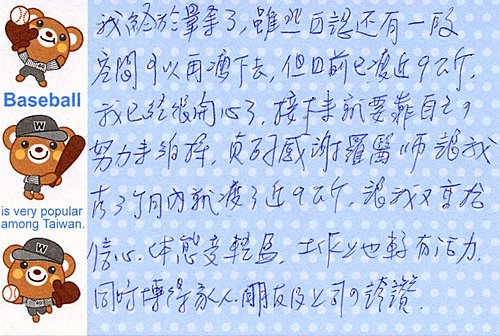 我終於畢業了,雖然自認還有一段
空間可以再瘦下去,但目前已瘦近9公斤,
我已經很開心了,接下來就要靠自己的
努力來維持,真的感謝羅醫師讓我
在3個月內就瘦了近9公斤,讓我又更有
信心,体態變輕盈,工作上也較有活力,
同時博得家人、朋友及公司的誇讚.
Baseball
is very popular
among Taiwan.
W
W